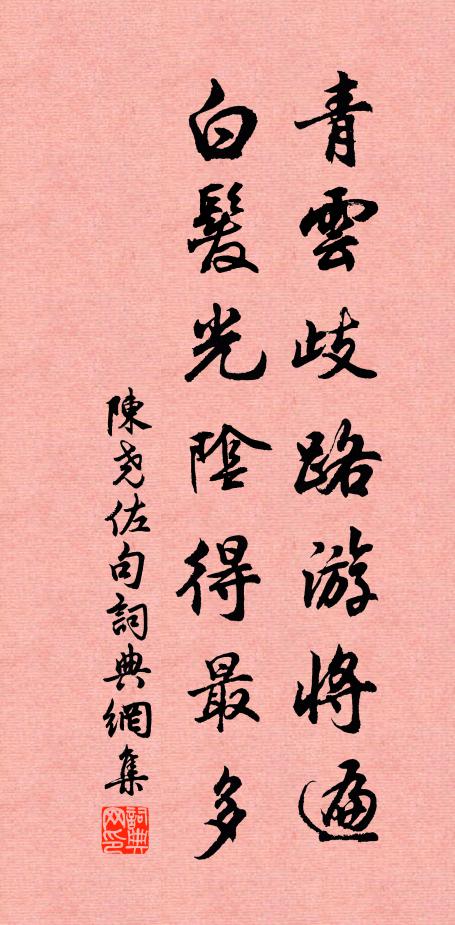 青雲歧路游將遍
白髮光陰得最多
陳堯佐句詞典網集
詞典网印